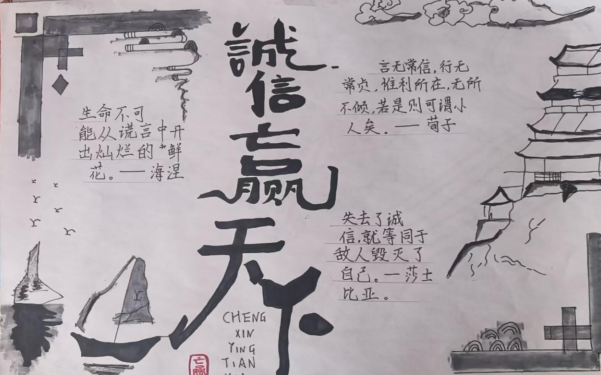 誠
信
赢
天
下
生命不可
能从谎言中开
出灿烂的鲜
花。——海涅
言无常信,行无
常贞,惟利所在,无所
不倾,若是则可谓小
人矣。——荀子
失去了诚
信,就等同于
敌人毁灭了
自己。—莎士
比亚。
CHENG
XIN
YING
TIAN